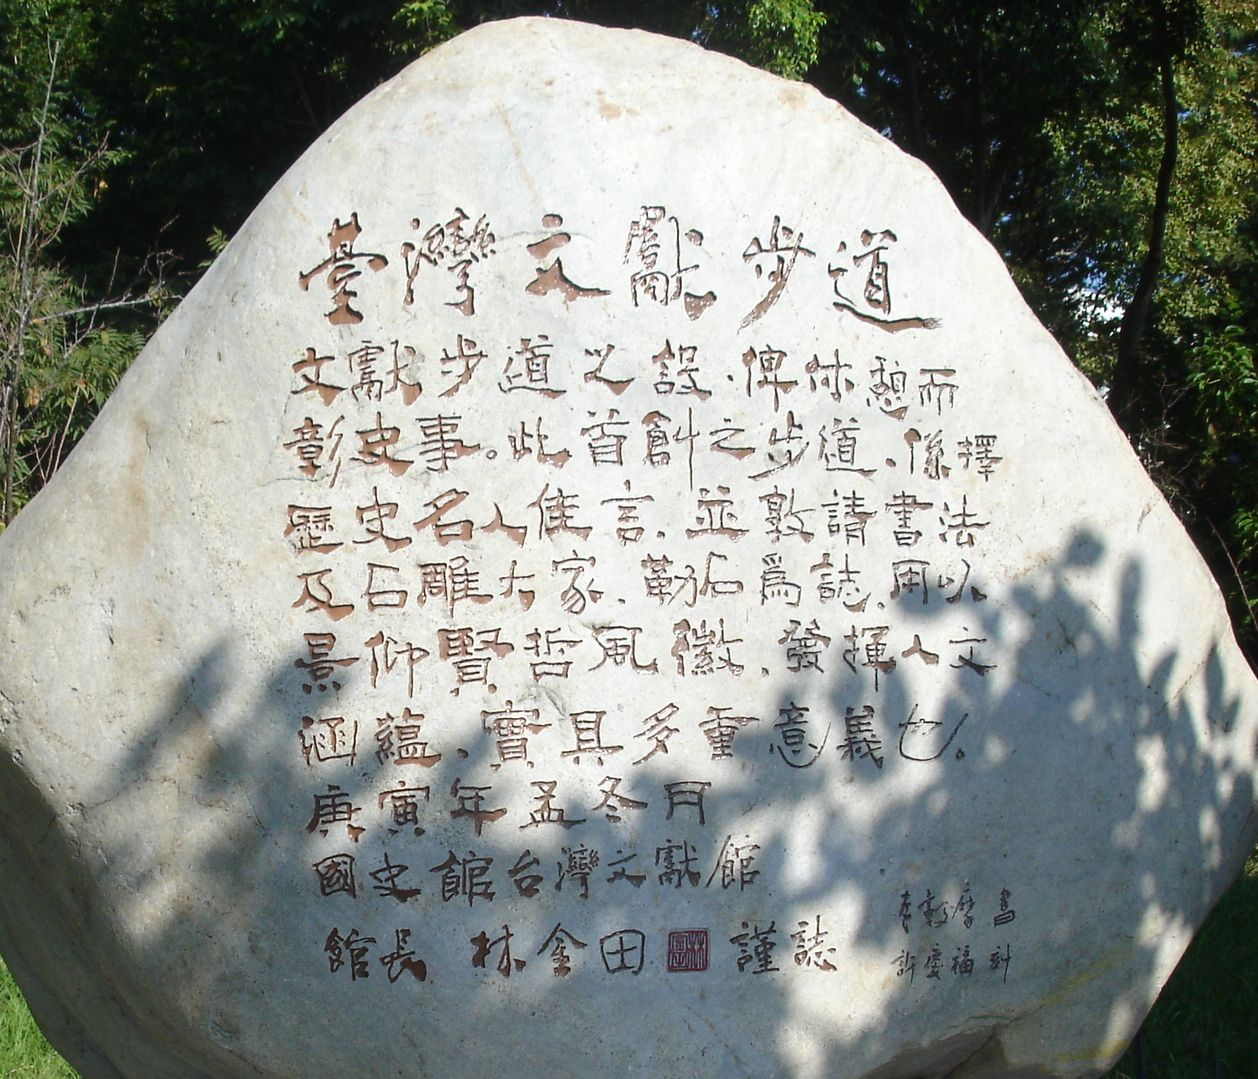 臺灣文獻步道
文獻步道之設，俾休憩而
彰史事。此首創之步道，係擇
歷史名人佳言，並敦請書法
及石雕大家，勒石為誌，用以
景仰賢哲風徽，發揮人文
涵蘊，實具多重意義也。
庚寅年孟冬月
國史館台灣文獻館
館長 林金田 謹誌
李轂摩書
許慶福刻